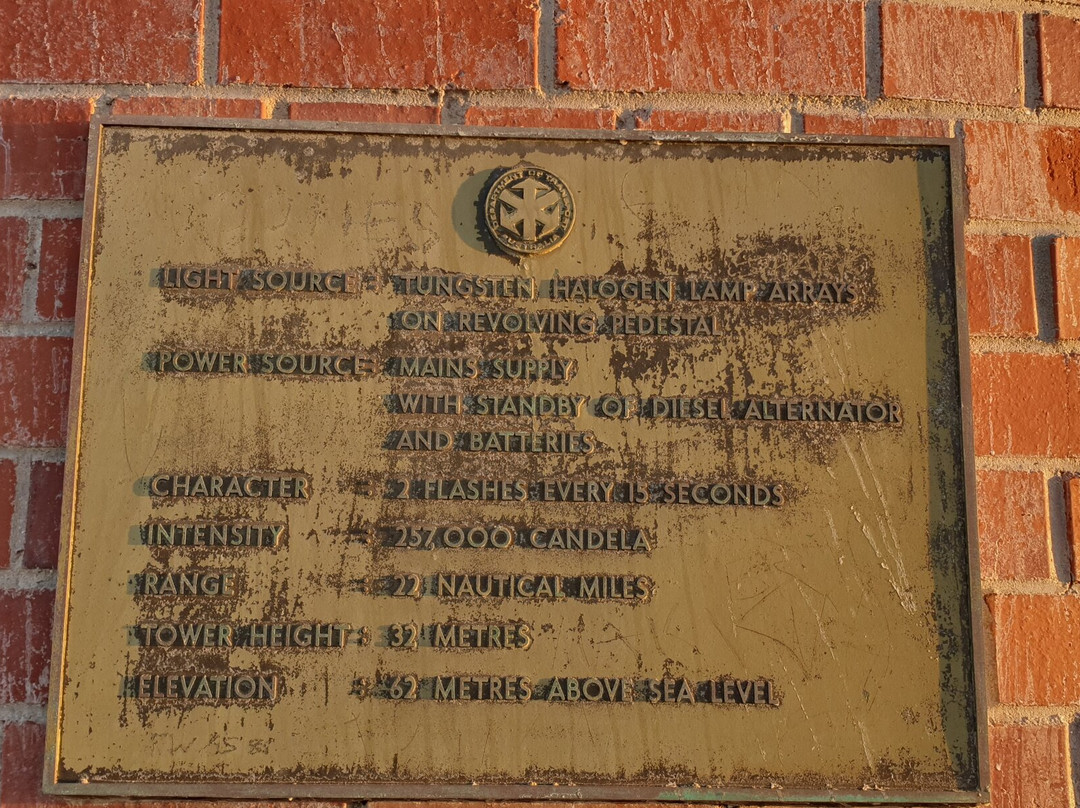 DEPARTMENT OF TRANSPORT
AUSTRALIA
LIGHT SOURCE : TUNGSTEN HALOGEN LAMP ARRAYS
ON REVOLVING PEDESTAL
POWER SOURCE : MAINS SUPPLY
WITH STANDBY OF DIESEL ALTERNATOR
AND BATTERIES
CHARACTER : 2 FLASHES EVERY 15 SECONDS
INTENSITY : 257,000 CANDELA
RANGE : 22 NAUTICAL MILES
TOWER HEIGHT : 32 METRES
ELEVATION : 62 METRES ABOVE SEA LEVEL